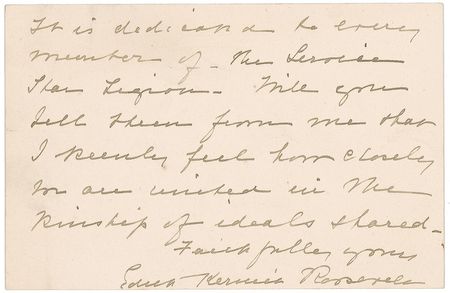 It is dedicated to every
member of - the Service
Star Legion - Will you
tell them from me that
I keenly feel how closely
we are united in the
kinship of ideals shared -
Faithfully yours,
Edith Kermit Roosevelt